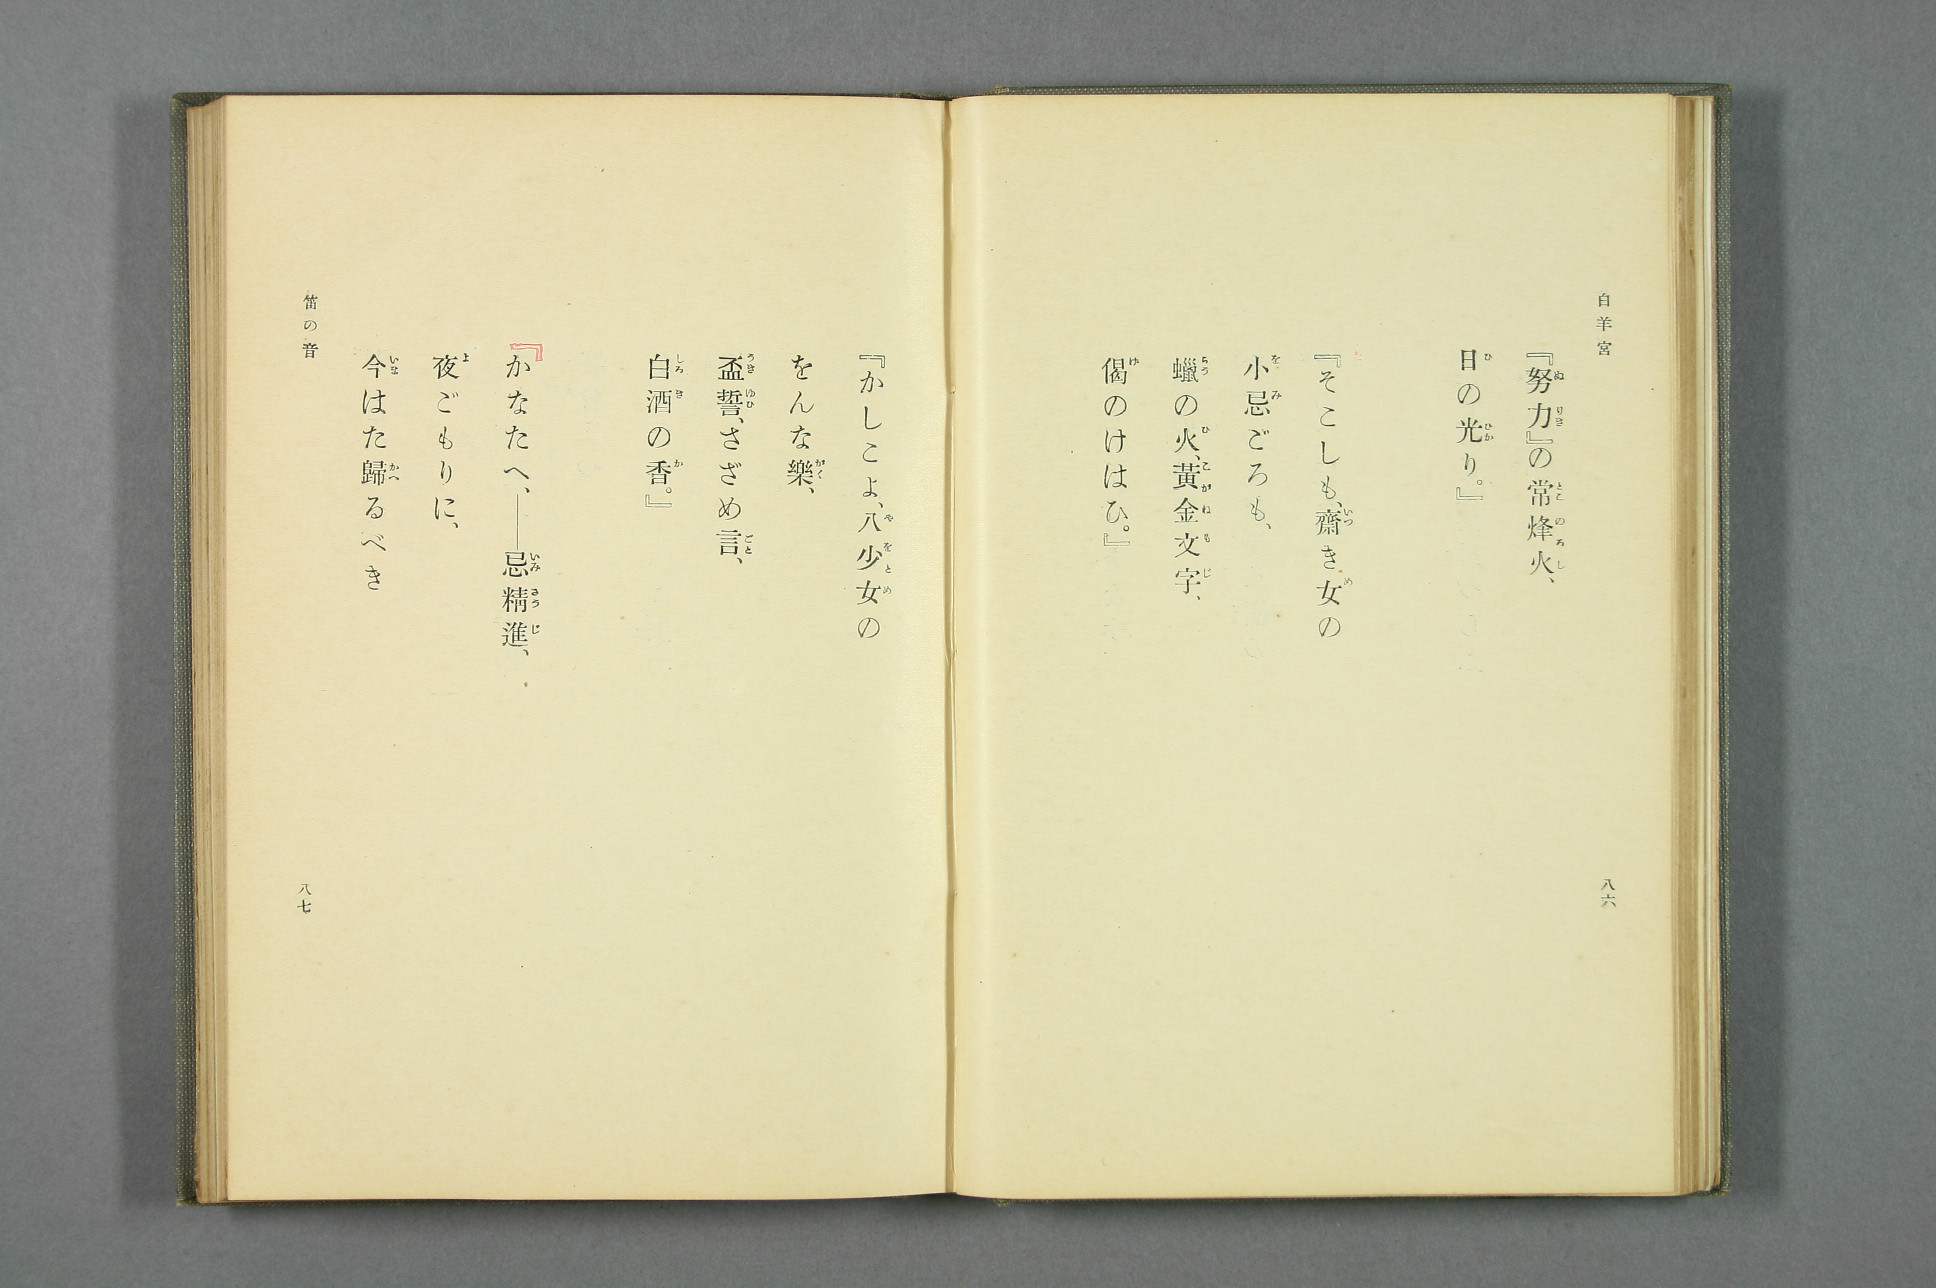 白羊宮
『努力』の常烽火、
日の光り。』
『そこしも、齋き女の
小忌ごろも、
蠟の火、黃金文字、
偈のけはひ。』
八六
『かしこよ、八少女の
をんな樂、
盃誓、さざめ言、
白酒の香。』
『かなたへ、――忌精進、
夜ごもりに、
今はた歸るべき
笛の音
八七